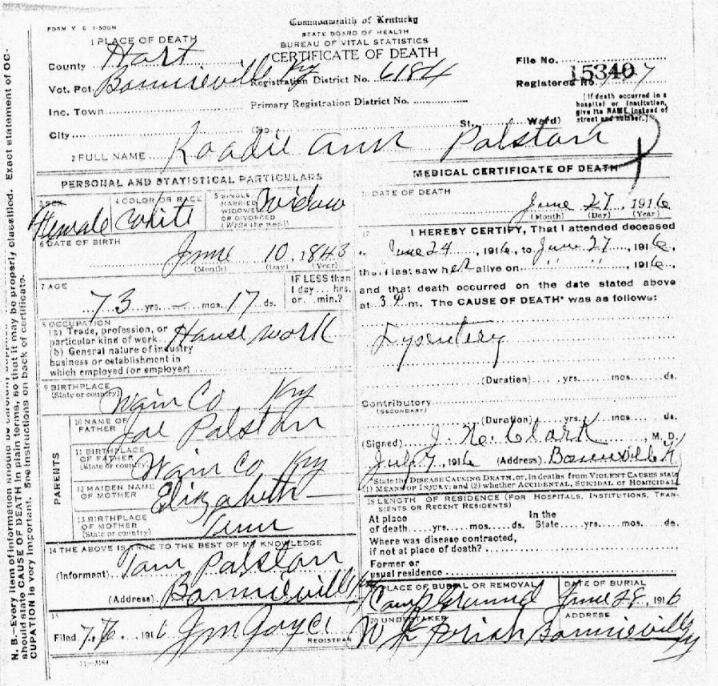 FORM V S 1-500M
Commonwealth of Kentucky
STATE BOARD OF HEALTH
BUREAU OF VITAL STATISTICS
CERTIFICATE OF DEATH
1 PLACE OF DEATH
County Hart
Vot. Pct Bonnieville Ky Registration District No. 6184
Inc. Town Primary Registration District No.
City (No. St. Ward)
File No. 15340
Registered No.
[If death occurred in a hospital or institution, give its NAME instead of street and number.]
2 FULL NAME Roadie Ann Palston
PERSONAL AND STATISTICAL PARTICULARS
3 SEX Female
4 COLOR OR RACE White
5 SINGLE MARRIED WIDOWED OR DIVORCED (Write the word) Widow
6 DATE OF BIRTH
June 10, 1843
(Month) (Day) (Year)
7 AGE
73 yrs. – mos. 17 ds.
IF LESS than 1 day... hrs. or... min.?
8 OCCUPATION
(a) Trade, profession, or particular kind of work House work
(b) General nature of industry
business or establishment in
which employed (or employer)
9 BIRTHPLACE
(State or country) Wain Co Ky
PARENTS
10 NAME OF FATHER Joe Palston
11 BIRTHPLACE OF FATHER (State or country) Wain Co Ky
12 MAIDEN NAME OF MOTHER Elizabeth
13 BIRTHPLACE OF MOTHER (State or country) Ann
14 THE ABOVE IS TRUE TO THE BEST OF MY KNOWLEDGE
(Informant) Tom Palston
(Address) Bonnieville Ky
15
Filed 7/6 1916 Jm Joyce
REGISTRAR
MEDICAL CERTIFICATE OF DEATH
DATE OF DEATH
June 27, 1916
(Month) (Day) (Year)
17 I HEREBY CERTIFY, That I attended deceased
June 24, 1916, to June 27, 1916,
that I last saw her alive on " " , 1916,
and that death occurred on the date stated above
at 3 P m. The CAUSE OF DEATH* was as follows:
Dysentery
(Duration) yrs. mos. ds.
Contributory
(SECONDARY)
(Duration) yrs. mos. ds.
(Signed) J. N. Clark, M. D.
July 7, 1916 (Address) Bonnieville K
*State the DISEASE CAUSING DEATH, or, in deaths from VIOLENT CAUSES state
(1) MEANS OF INJURY; and (2) whether ACCIDENTAL, SUICIDAL OR HOMICIDAL
18 LENGTH OF RESIDENCE (FOR HOSPITALS, INSTITUTIONS, TRANSIENTS OR RECENT RESIDENTS)
At place of death yrs. mos. ds. In the State yrs. mos. ds.
Where was disease contracted,
if not at place of death?
Former or
usual residence
19 PLACE OF BURIAL OR REMOVAL DATE OF BURIAL
Camp Ground June 28, 1916
20 UNDERTAKER ADDRESS
Parish Bonnieville Ky
N. B.—Every item of information should be carefully supplied. should state CAUSE OF DEATH in plain terms, so that it may be properly classified. Exact statement of OCCUPATION is very important. See instructions on back of certificate.